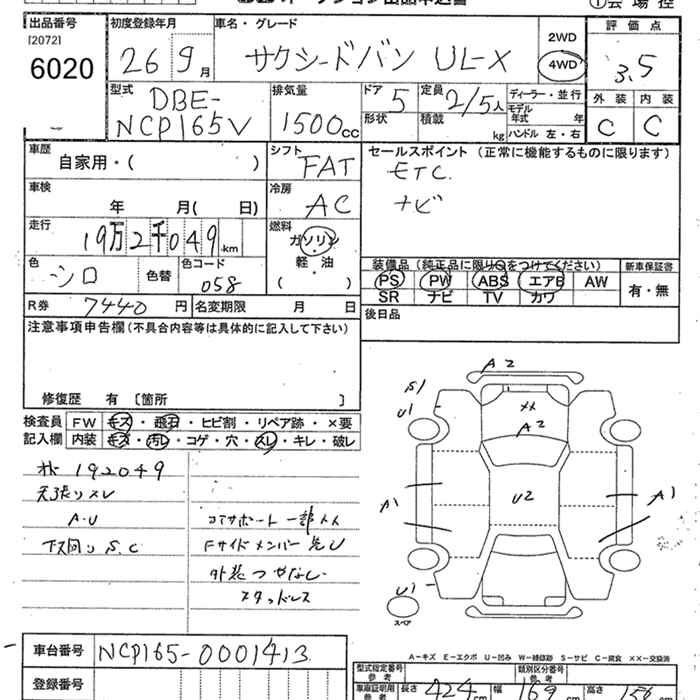 出品番号 初度登録年月 車名・グレード 2WD 評価点
[2072] 6020 26 9月 サクシードバン UL-X 4WD 3.5
型式 排気量 ドア 定員 ディーラー・並行 外装 内装
DBE- 5 2/5人 モデル年式 年 C C
NCP165V 1500cc 形状 積載 kg ハンドル 左・右
車歴 シフト セールスポイント (正常に機能するものに限ります)
自家用・( ) FAT ETC.
車検 冷房 ナビ
年 月( 日) AC
走行 燃料
19万2千049km ガソリン
色 色替 色コード 軽・油 装備品(純正品に限り○をつけてください) 新車保証書
シロ 058 ( ) PS PW ABS エアB AW 有・無
SR ナビ TV カワ
R券 7440円 名変期限 月 日 後日品
注意事項申告欄(不具合内容等は具体的に記入して下さい)
修復歴 有 [箇所 ]
検査員 FW キズ・飛石・ヒビ割・リペア跡・×要
記入欄 内装 キズ・汚レ・コゲ・穴・スレ・キレ・破レ
A2
S1
U1
XX
A2
U2
A1 A1
U1
スペア
192049
A・U コアサポート一部
下回り S.C Fサイドメンバー
外装つやなし
スタッドレス
A-キズ E-エクボ U-凹み W-補修跡 S-サビ C-腐食 XX-交換済
車台番号 NCP165-0001413 型式指定番号 参考 類別区分番号 参考
登録番号 車庫証明用 参考 長さ 424cm 幅 169cm 高さ